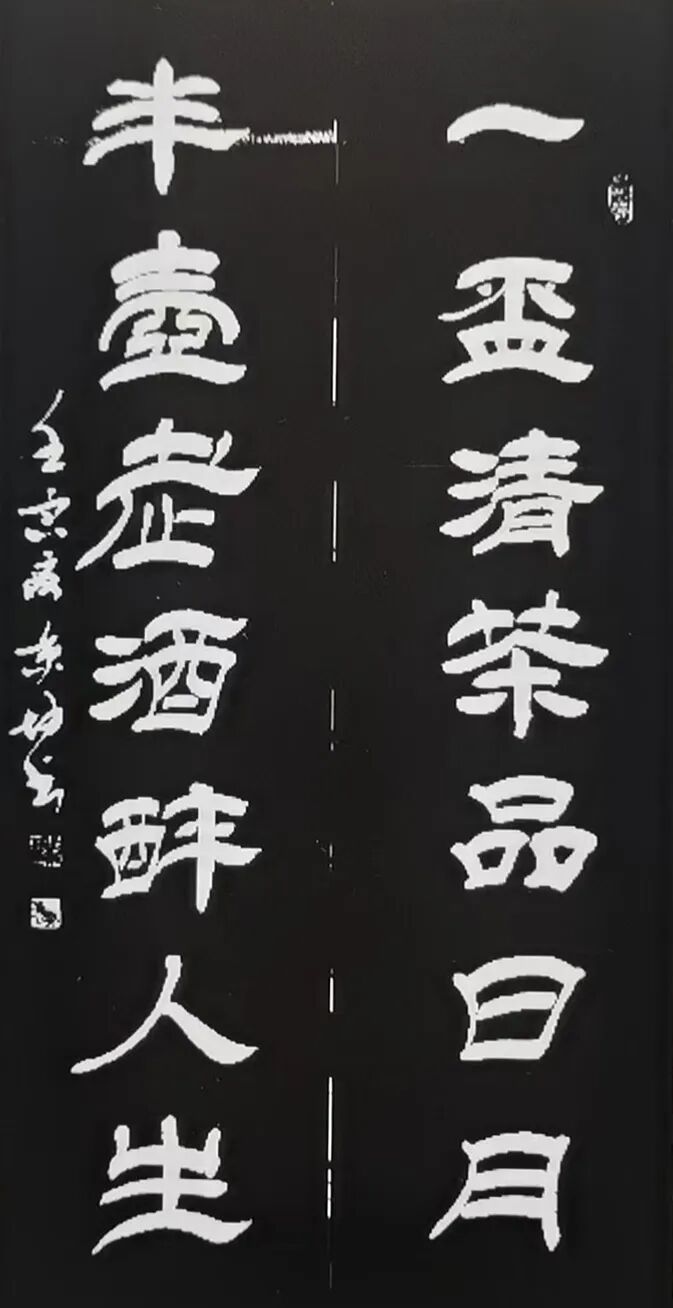 一盃清茶品日月
半壺老酒酔人生
壬寅 书